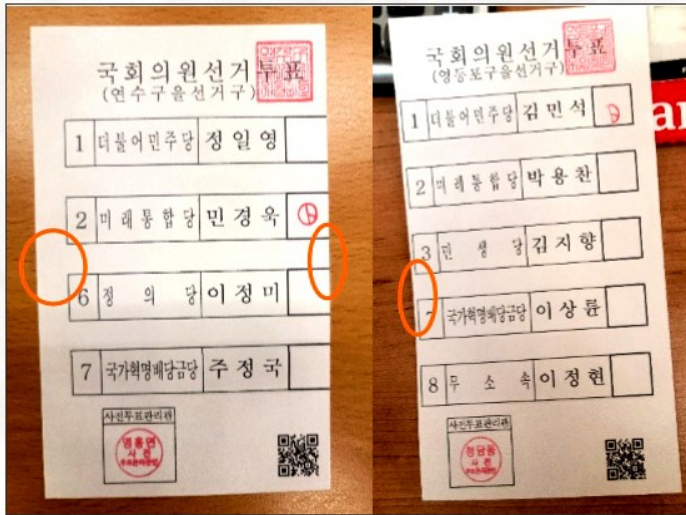 국회의원선거투표
(연수구을선거구)
1 더불어민주당 정일영
2 미래통합당 민경욱
6 정의당 이정미
7 국가혁명배당금당 주정국
사전투표관리관
사전
국회의원선거투표
(영등포구을선거구)
1 더불어민주당 김민석
2 미래통합당 박용찬
3 민생당 김지향
7 국가혁명배당금당 이상륜
8 무소속 이정현
사전투표관리관
사전